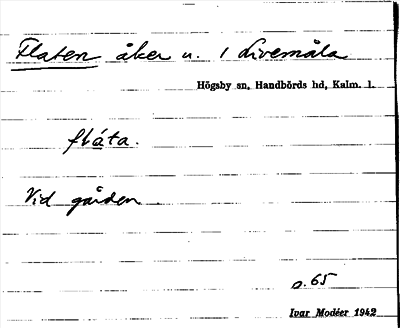 Flaten åker u. 1 Livemåla
Högsby sn, Handbörds hd, Kalm. l.
flåta.
Vid gården
s. 65
Ivar Modéer 1942